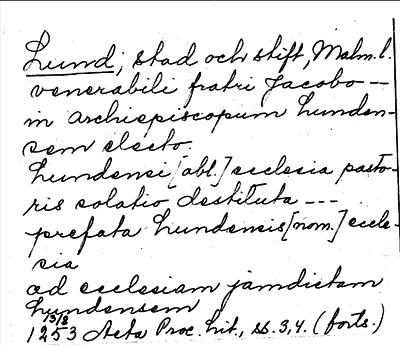 Lund; stad och stift, Malm. l.
venerabili fratri Jacobo ---
in archiepiscopum Lunden-
sem electo.
Lundensi [abl.] ecclesia pasto-
ris solatio destituta ---
prefata Lundensis [nom.] eccle-
sia
ad ecclesiam jamdictam
Lundensem
13/8
1253 Acta Proc. Lit., ss. 3, 4. (forts.)